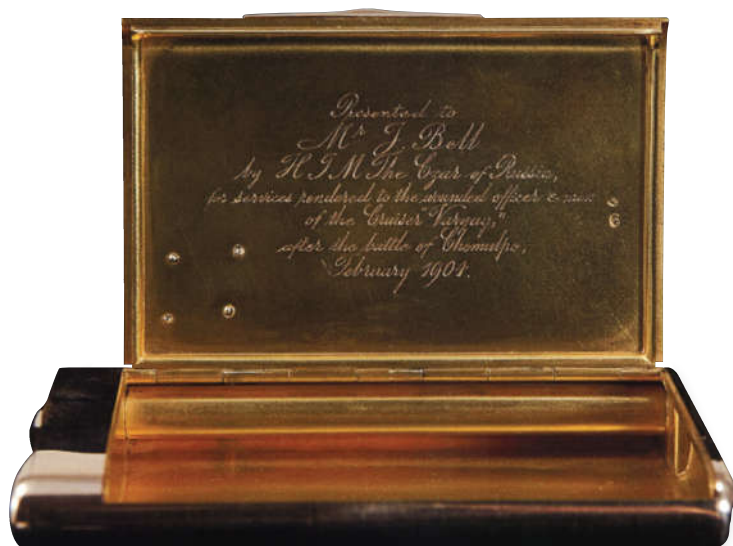 Presented to
Mr J. Bell
by H I M The Czar of Russia,
for services rendered to the wounded officer & men
of the Cruiser Varyag,"
after the battle of Chemulpo,
February 1904.